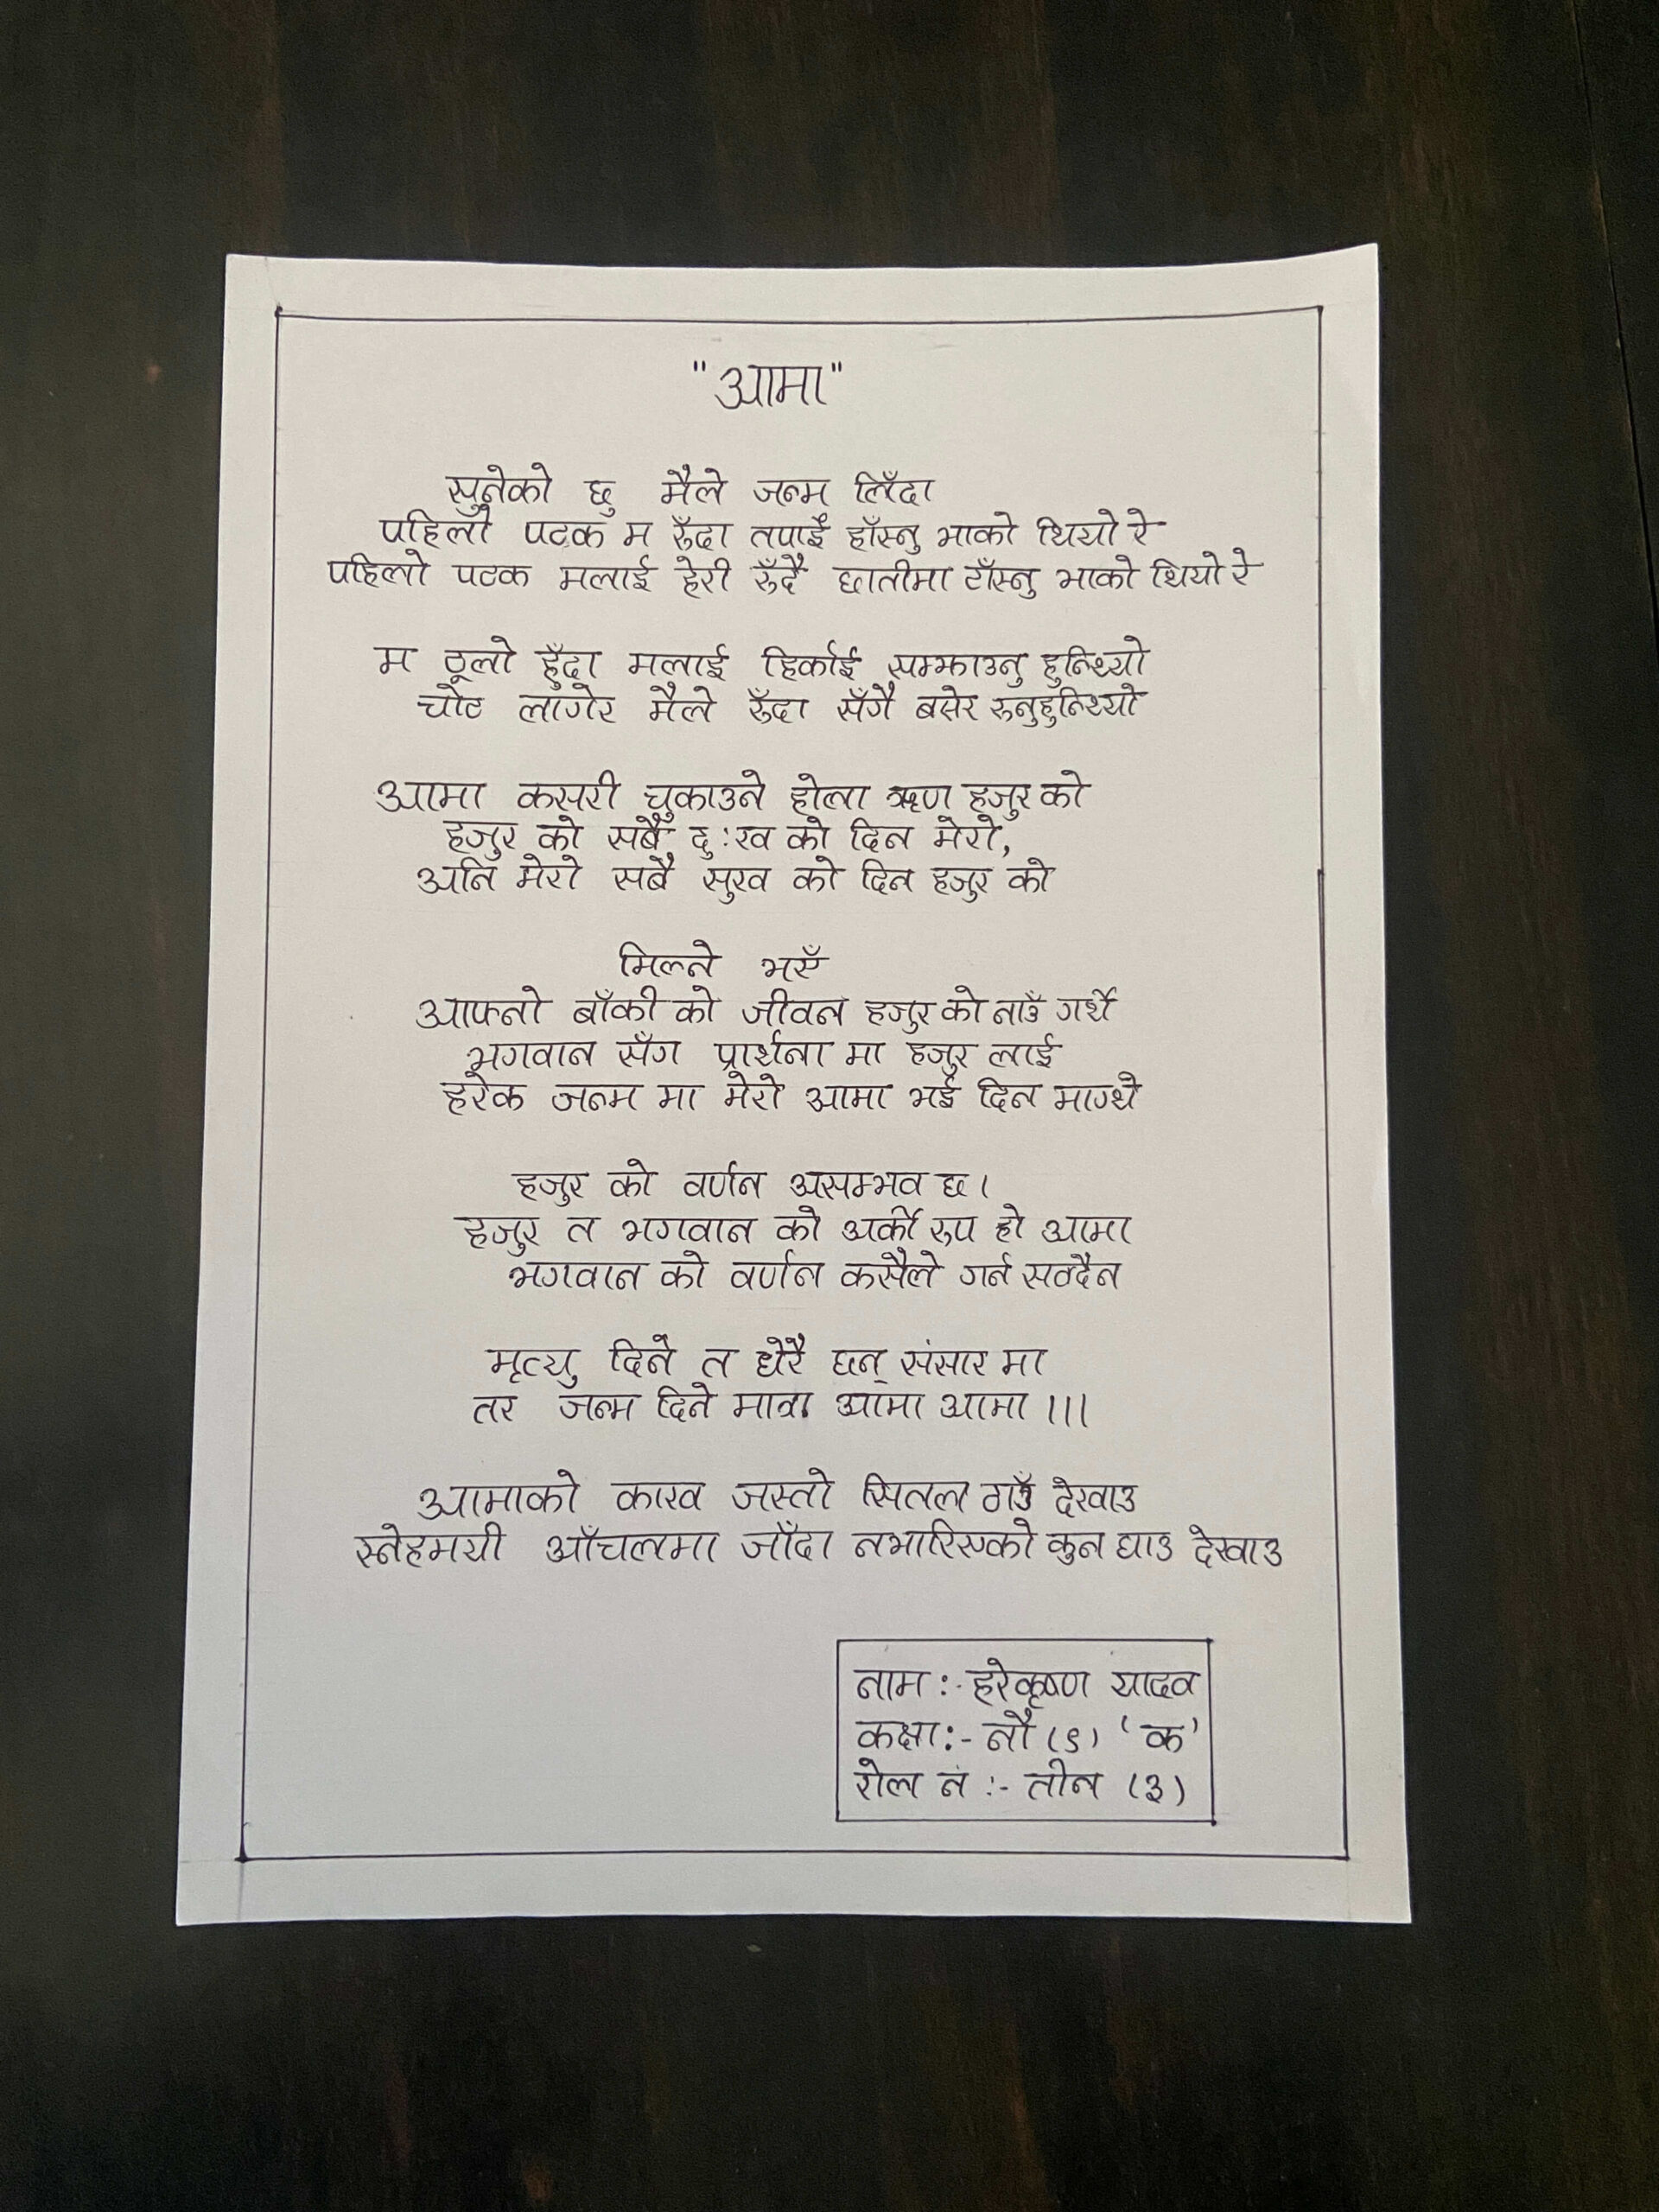 "आमा"
सुनेको छु मैले जन्म लिँदा
पहिलो पटक म रुँदा तपाईं हाँस्नु भाको थियो रे
पहिलो पटक मलाई हेरी रुँदै छातीमा टाँस्नु भाको थियो रे
म ठूलो हुँदा मलाई हिर्काई सम्झाउनु हुन्थ्यो
चोट लागेर मैले रुँदा सँगै बसेर रुनुहुन्थ्यो
आमा कसरी चुकाउने होला ऋण हजुर को
हजुर को सबै दु:ख को दिन मेरो,
अनि मेरो सबै सुख को दिन हजुर को
मिल्ने भएँ
आफ्नो बाँकी को जीवन हजुर को नाउँ गर्थे
भगवान सँग प्रार्थना मा हजुर लाई
हरेक जन्म मा मेरो आमा भई दिन माग्थे
हजुर को वर्णन असम्भव छ।
हजुर त भगवान को अर्को रुप हो आमा
भगवान को वर्णन कसैले गर्न सक्दैन
मृत्यु दिने त धेरै छन् संसार मा
तर जन्म दिने मात्रा आमा आमा ।।।
आमाको काख जस्तो सितल ठाउँ देखाउ
स्नेहमयी आँचलमा जाँदा नभारिएको कुन घाउ देखाउ
नाम :- हरेकृष्ण यादव
कक्षा:- नौ (९) 'क'
रोल नं :- तीन (३)